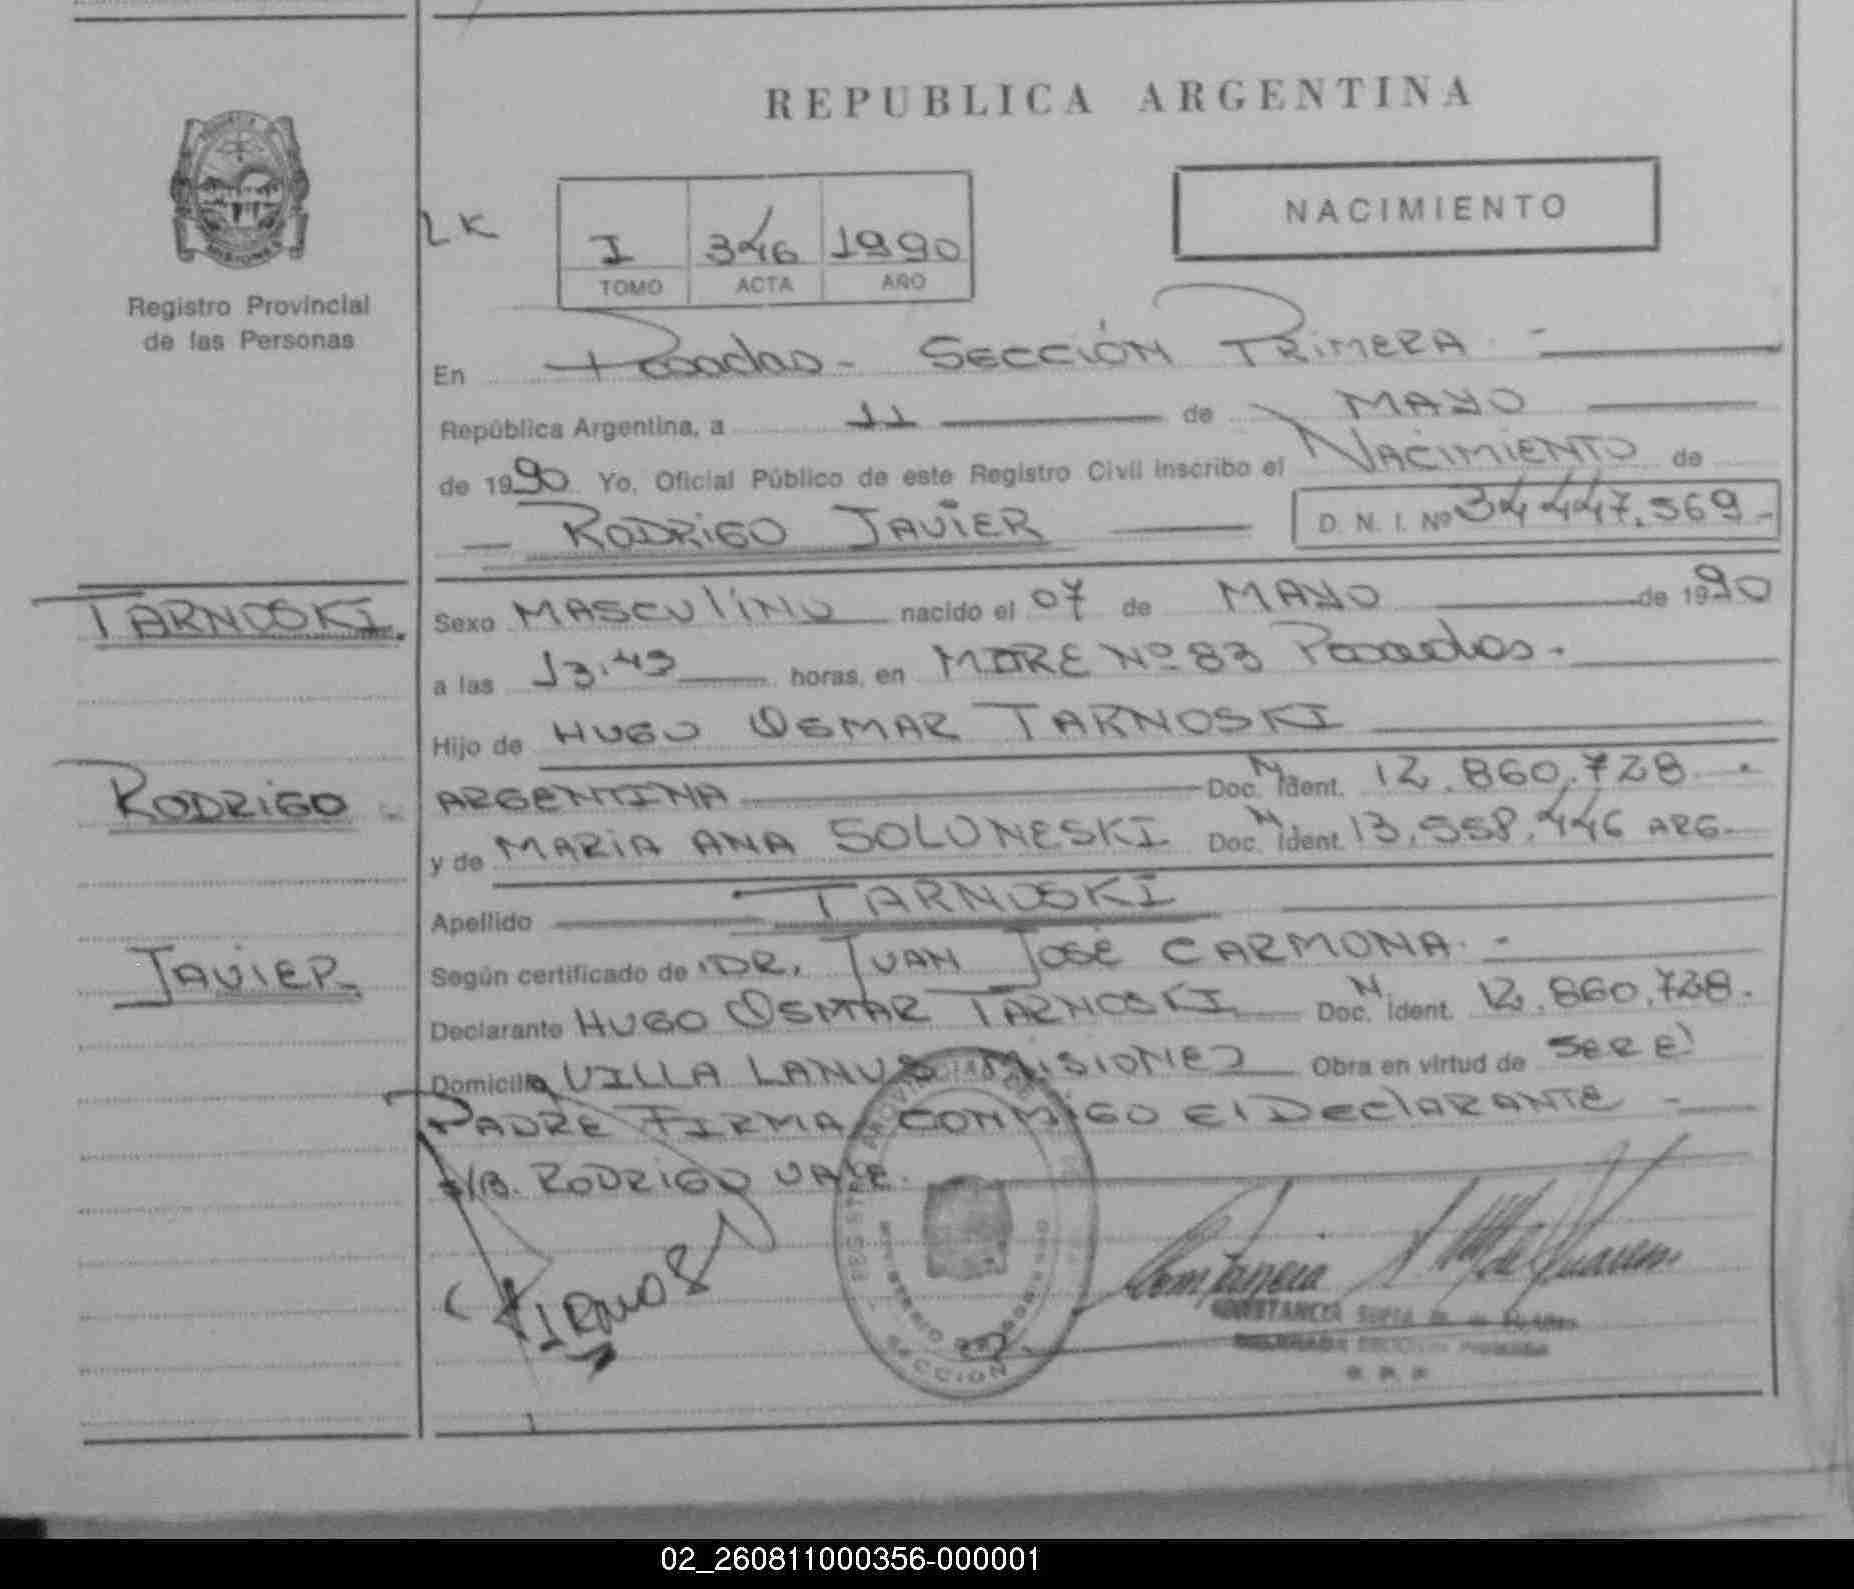 REPUBLICA ARGENTINA
NACIMIENTO
Registro Provincial
de las Personas
LK
I 346 1990
TOMO ACTA AÑO
En Posadas - SECCIÓN PRIMERA -
República Argentina, a 11 de MAYO
de 1990 Yo, Oficial Público de este Registro Civil inscribo el NACIMIENTO de
RODRIGO JAVIER D. N. I. Nº 34.447.569-
TARNOSKI.
Sexo MASCULINO nacido el 07 de MAYO de 1990
a las 13:45 horas, en MORE Nº 83 Posadas.
Hijo de HUGO OSMAR TARNOSKI
RODRIGO -
ARGENTINA Doc. N. Ident. 12.860.728.
y de MARIA ANA SOLONESKI Doc. N. Ident. 13.558.446 ARG.
Apellido TARNOSKI
JAVIER-
Según certificado de DR. JUAN JOSÉ CARMONA. -
Declarante HUGO OSMAR TARNOSKI Doc. N. Ident. 12.860.728.
Domicilio VILLA LANUS MISIONES Obra en virtud de SER El
PADRE FIRMA CONMIGO El DEClARANTE -
S/B. RODRIGO VALE.
REGISTRO PROVINCIAL DE
MINISTERIO DE GOBIERNO
SECCION
Constancia
CONSTANCIA
DELEGADA SECCION PRIMERA
R. P. P.
02_260811000356-000001